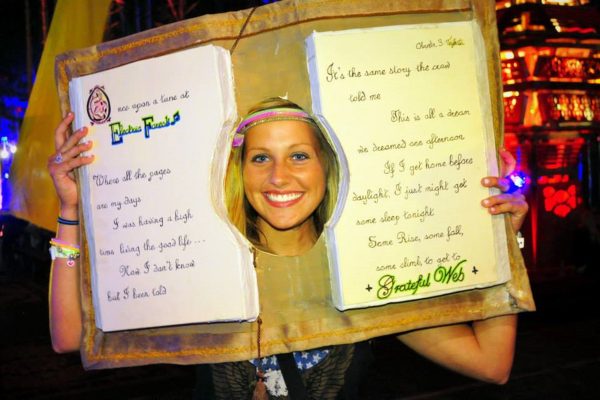 Once upon a tune at
Electric Forest
Where all the pages
are my days
I was having a high
time living the good life ...
Now I don't know
but I been told
3
It's the same story the crow
told me
This is all a dream
we dreamed one afternoon
If I get home before
daylight, I just might get
some sleep tonight
Some Rise, some fall,
some climb, to get to
Grateful Web